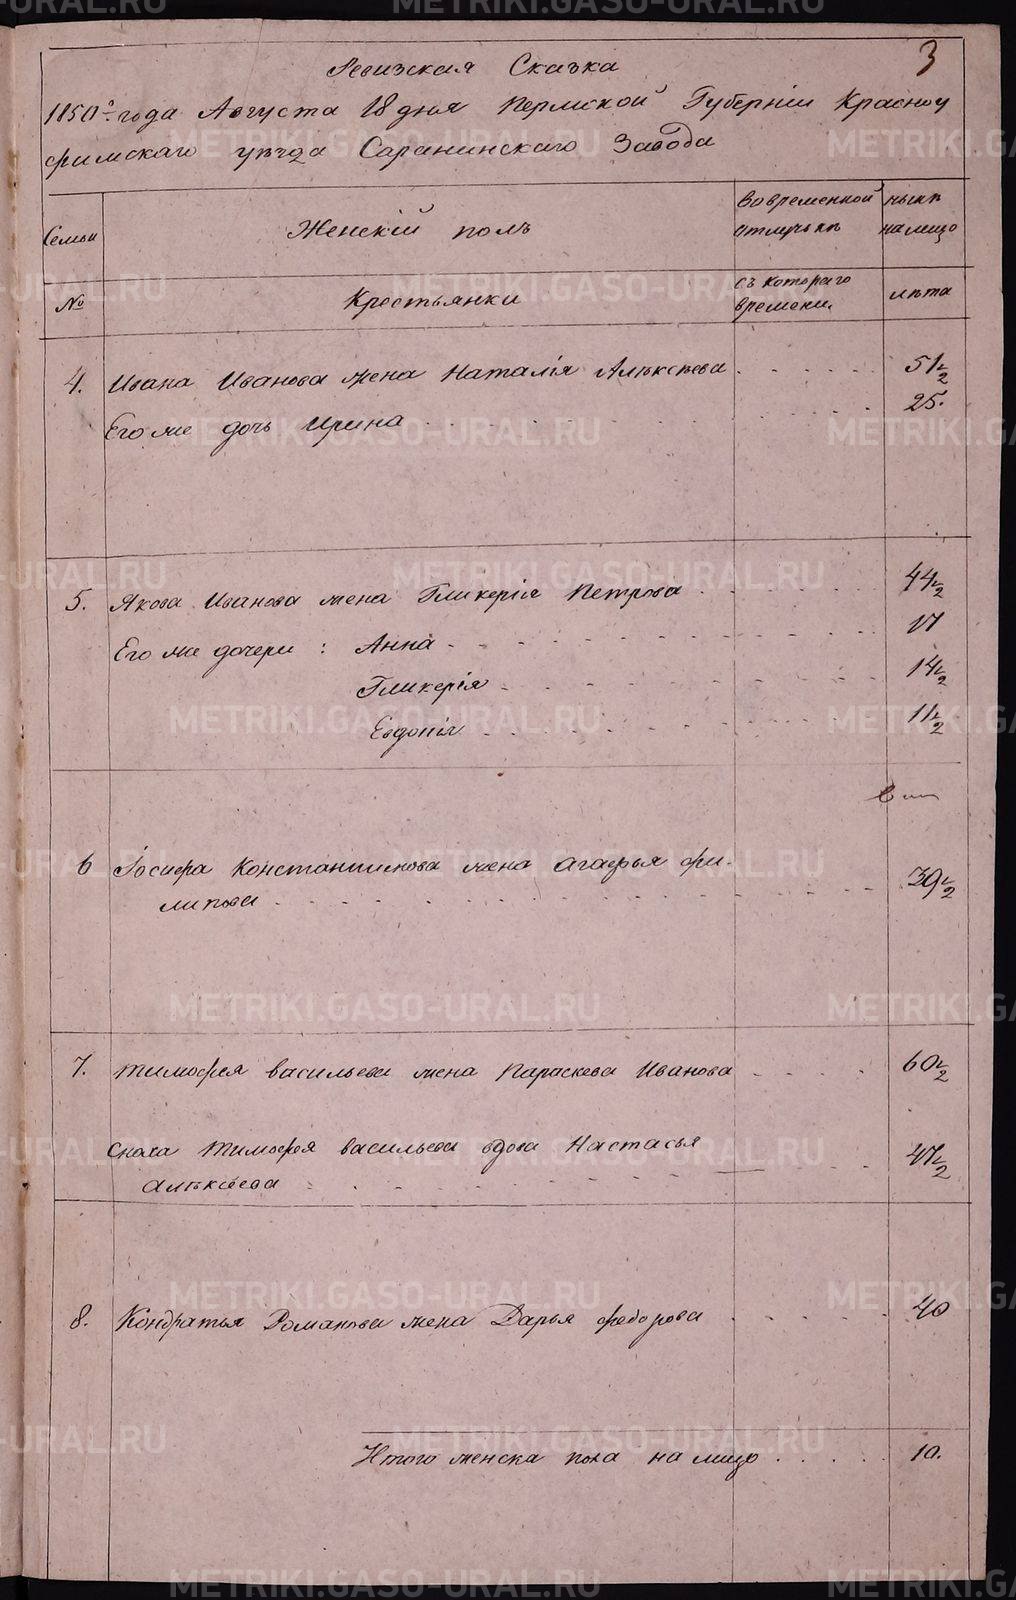 3
Ревизская Сказка
1850го года Августа 18 дня Пермской Губерніи Красноу
фимскаго уѣзда Саранинскаго Завода
Семьи
Женскій полъ
во временной отлучкѣ
нынѣ на лицо
№
Крестьянки
съ котораго времени.
лѣта
4. Ивана Иванова жена Наталія Алѣксѣева . . . . . . 51 1/2
Его же дочь Ирина . . . . . . 25.
5. Якова Иванова жена Гликерія Петрова . . . . . . 44 1/2
Его же дочери : Анна . . . . . . 17
Гликерія . . . . . . 14 1/2
Евдокія . . . . . . 11 1/2
6 Іосифа Константинова жена Агафья Фи-
липова . . . . . . 39 1/2
7. Тимофея Васильева жена Параскева Иванова . . . . . 60 1/2
Сноха Тимофея Васильева вдова Настасья
Алѣксѣева . . . . . . 47 1/2
8. Кондратья Романова жена Дарья Федорова . . . . . . 40
Итого женска пола на лицо . . . . . 10.
METRIKI.GASO-URAL.RU